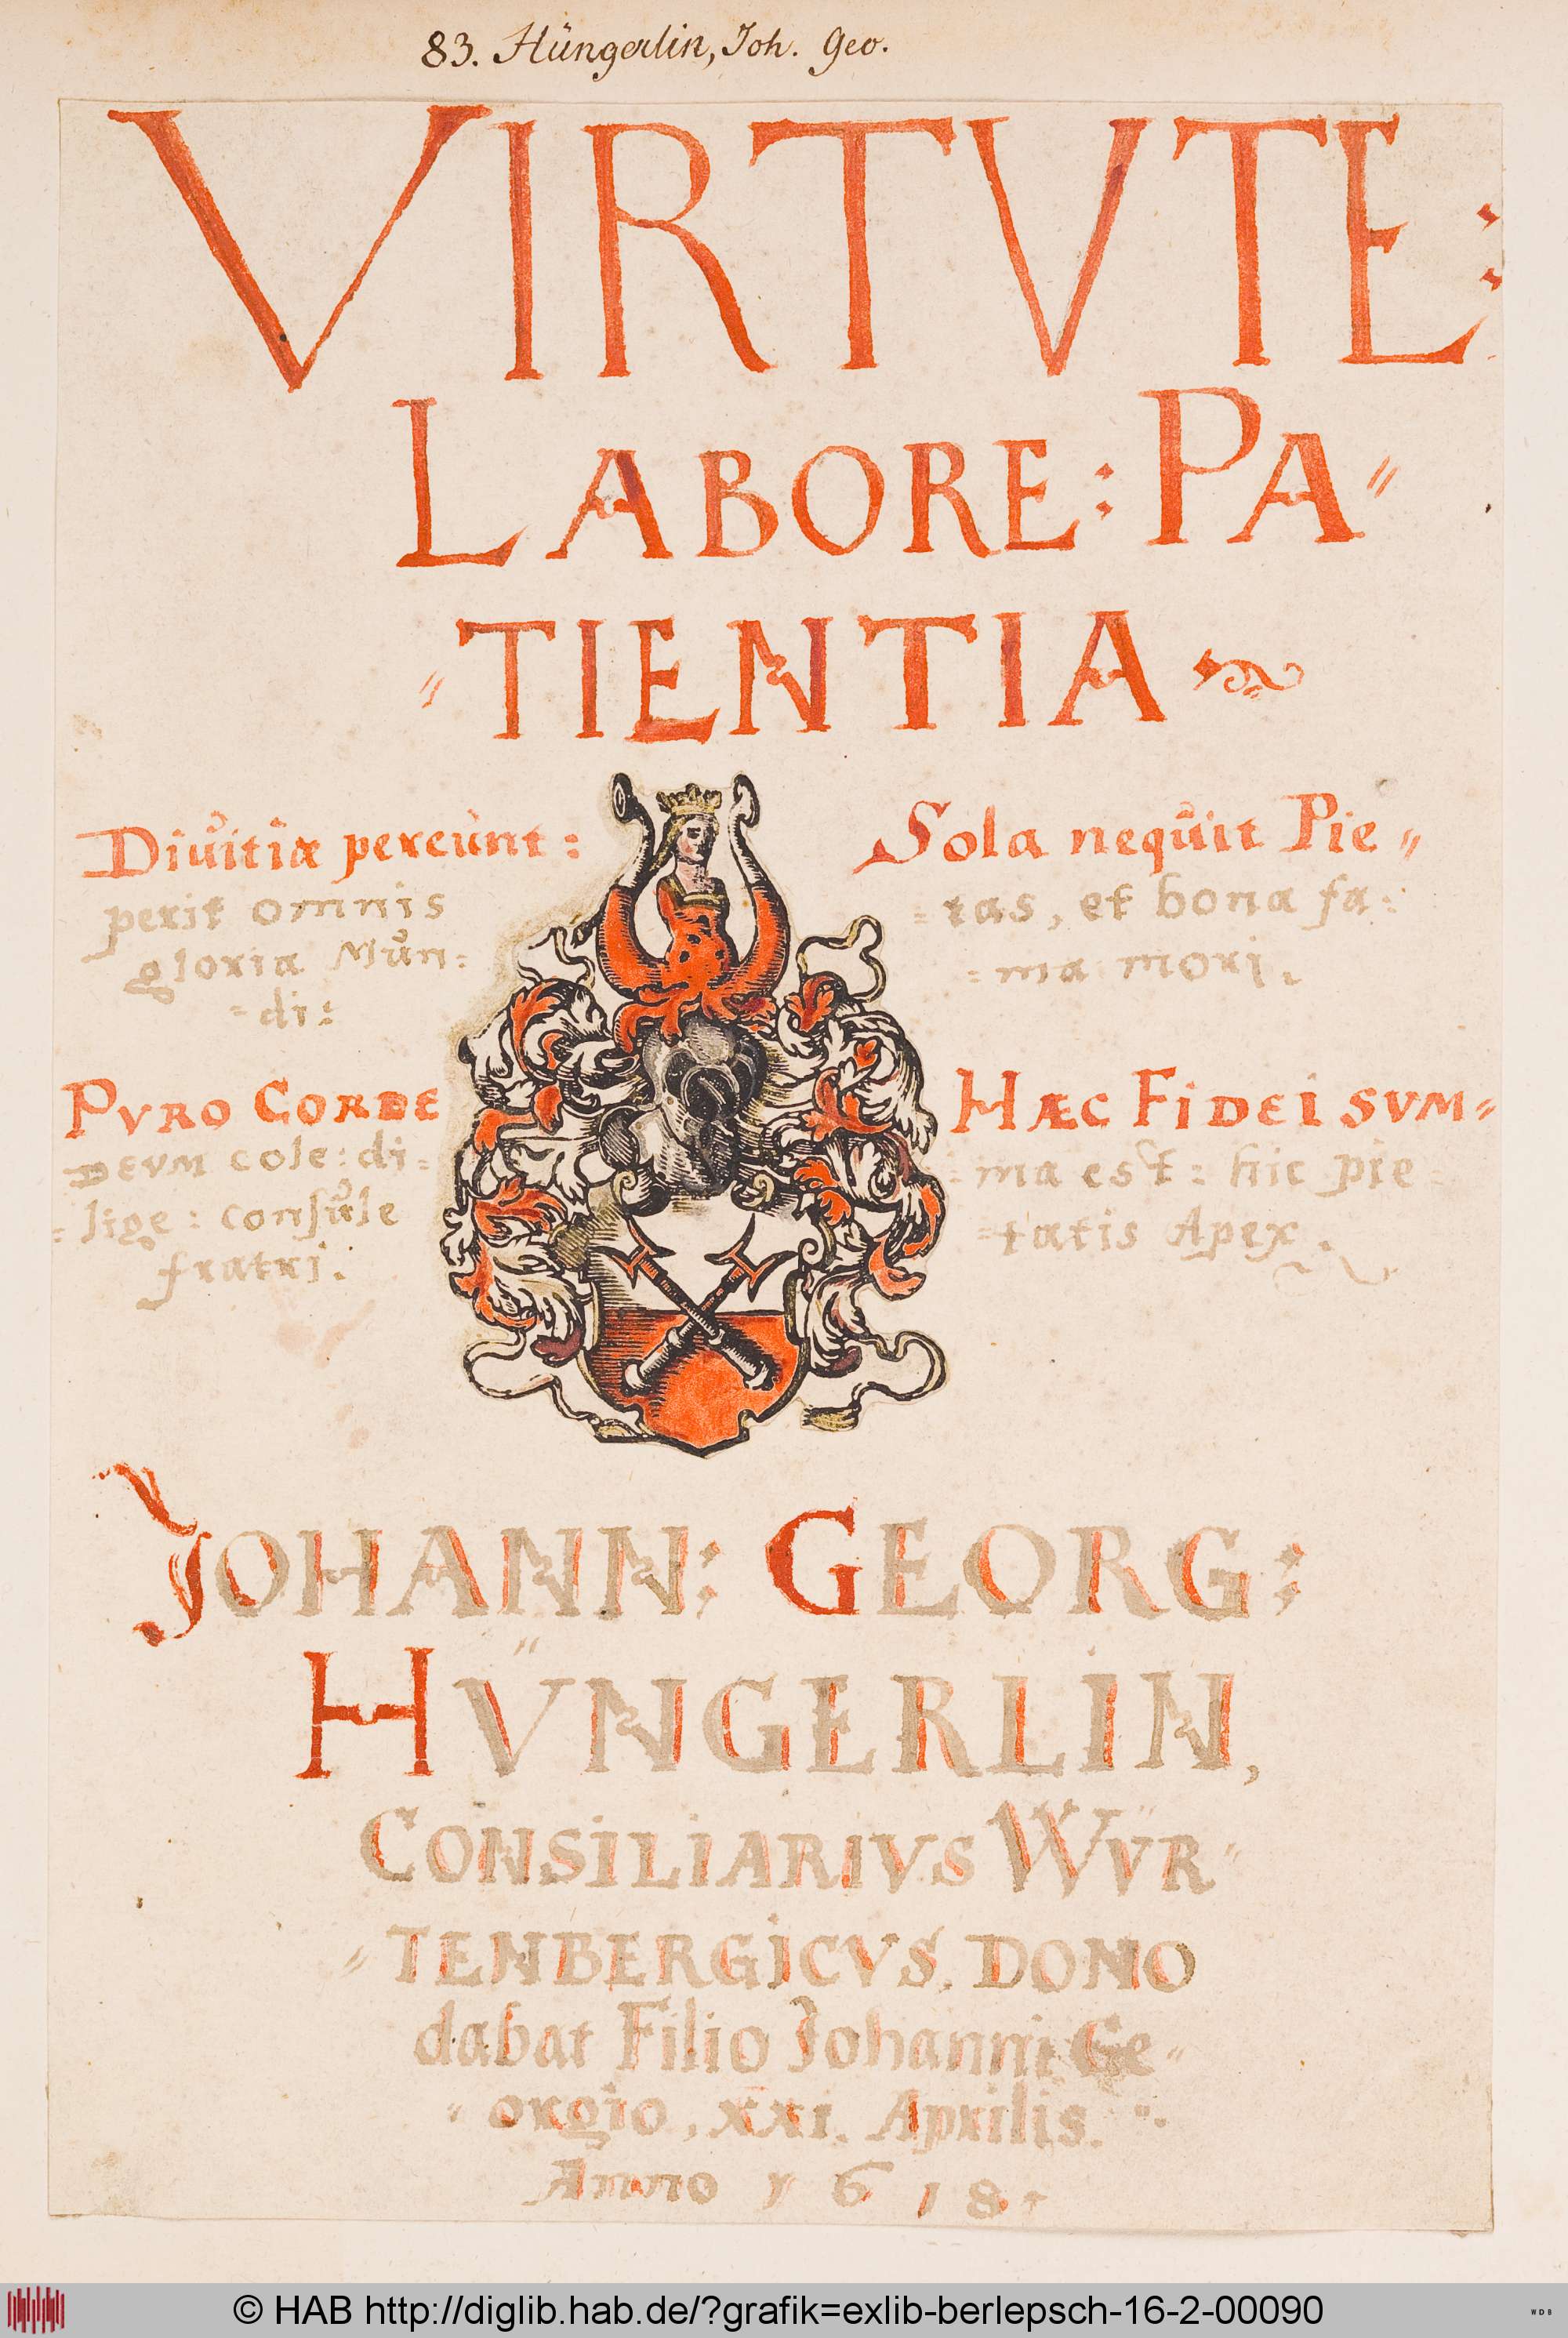 83. Hüngerlin, Joh. Geo.
VIRTVTE:
LABORE: PA"
"TIENTIA
Diůitiæ pereůnt:
perit omnis
gloria Můn:
=di:
Sola neqůit Pie"
=tas, et bona fa:
=ma mori.
PVRO CORDE
DEVM cole: di=
=lige: conſůle
fratri.
HÆC FIDEI SVM"
=ma est: hic pie=
=tatis Apex.
JOHANN: GEORG:
HV̈NGERLIN,
CONSILIARIVS WV̈R"
"TENBERGICVS. DONO
dabat Filio Johanni Ge"
"orgio, XXI. Aprilis.
Anno 1618.
© HAB http://diglib.hab.de/?grafik=exlib-berlepsch-16-2-00090
WDB